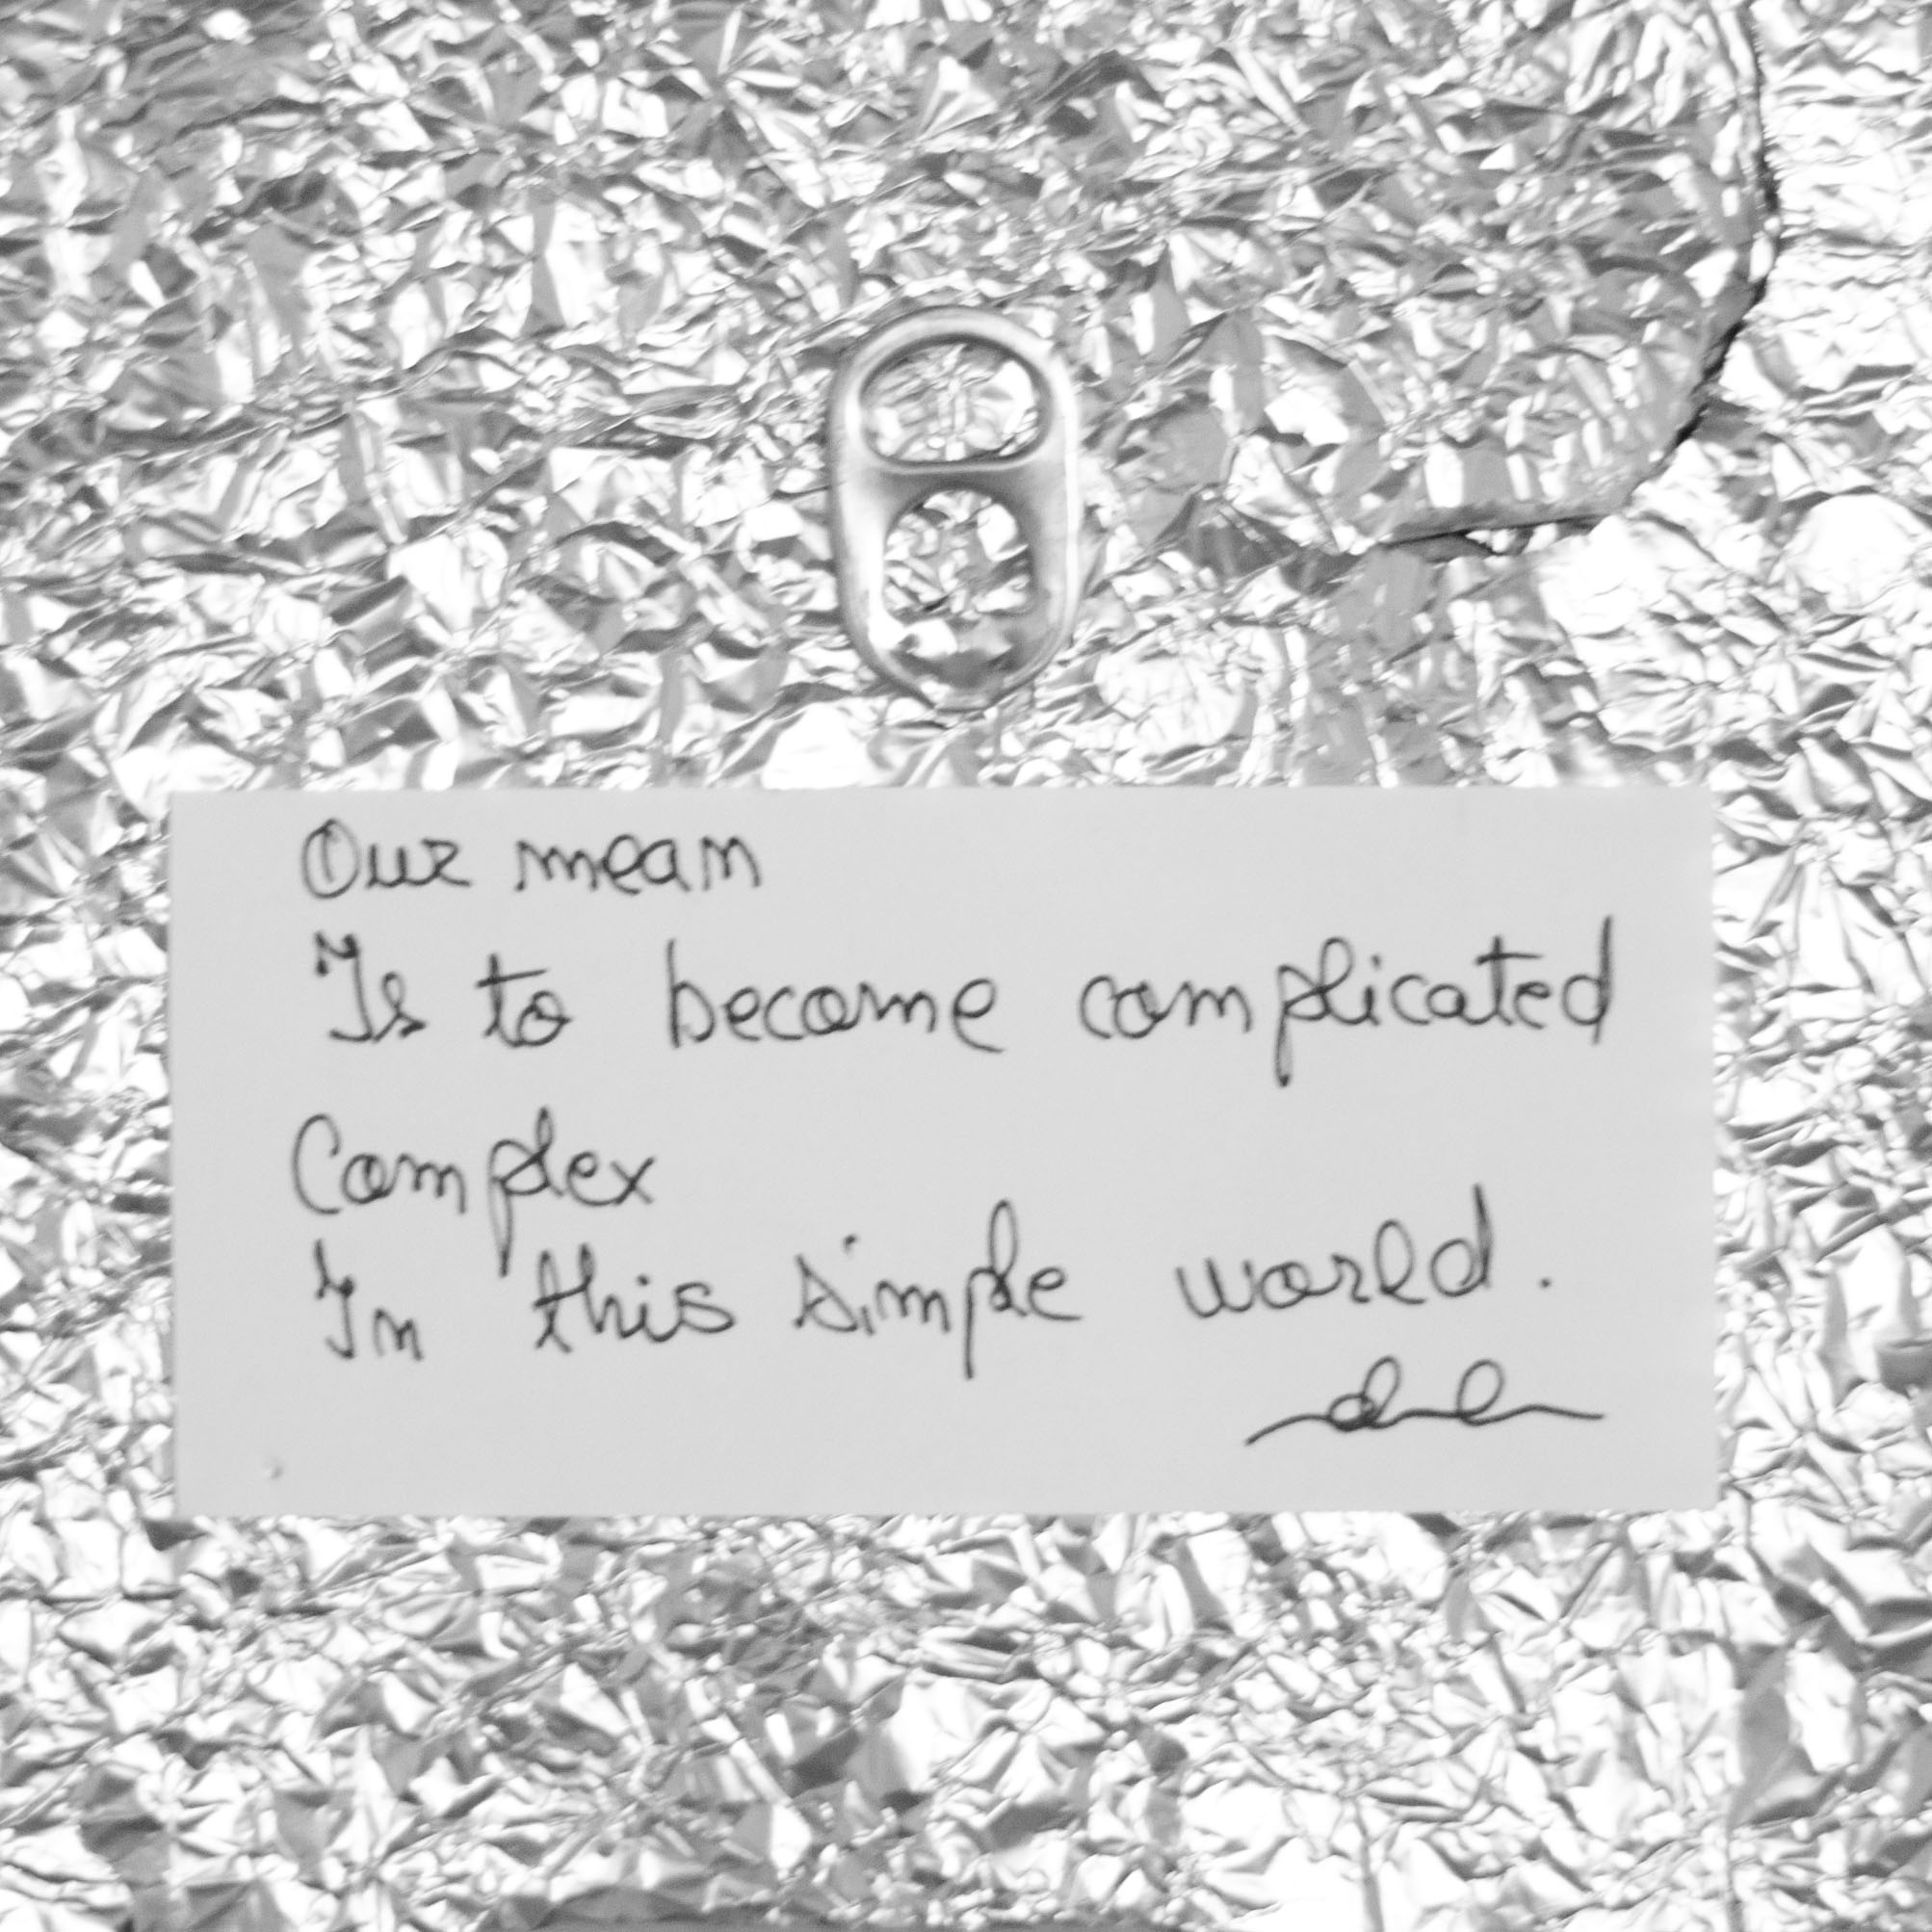 Our mean
Is to become complicated
Complex
In this simple world.